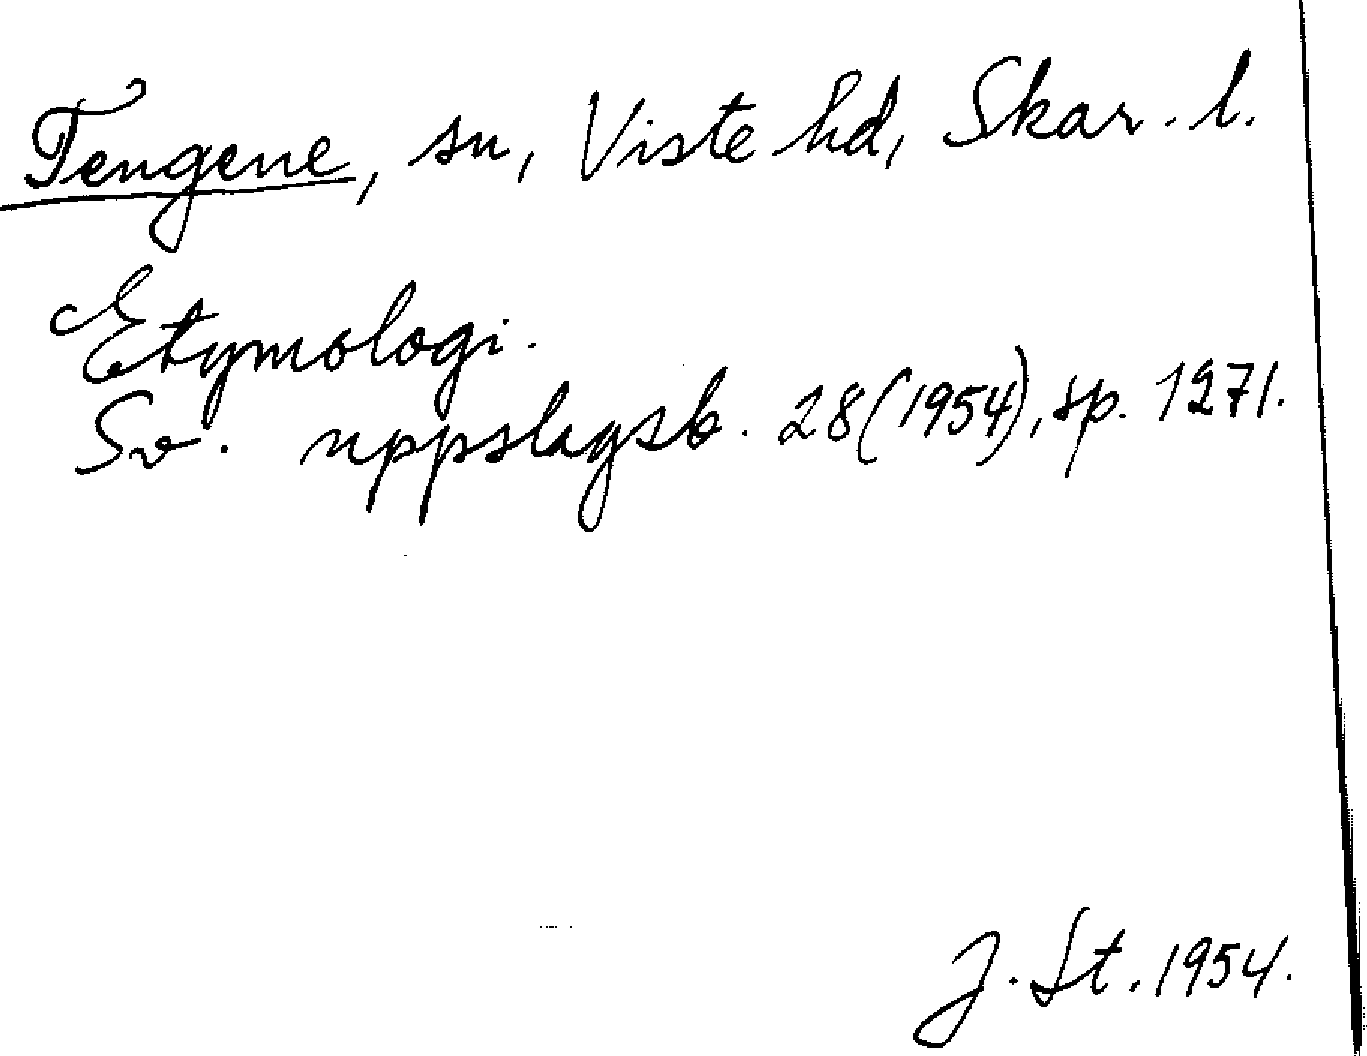 Tengene, sn, Viste hd, Skar. l.
Etymologi.
Sv. uppslagsb. 28 (1954), sp. 1271.
J. St. 1954.